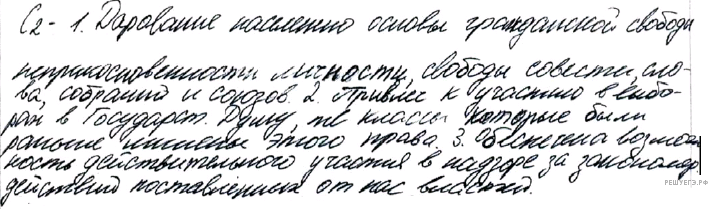 С2- 1. Дарование населению основы гражданской свободы
неприкосновенности личности, свободы совести, сло-
ва, собраний и союзов. 2. Привлеч к участию в выбо-
рах в Государст. Думу, те классы которые были
раньше лишены этого права. 3. Обеспечена возмож
ность действительного участия в надзоре за закономер.
действий поставленных от нас властей.
РЕШУЕГЭ.РФ